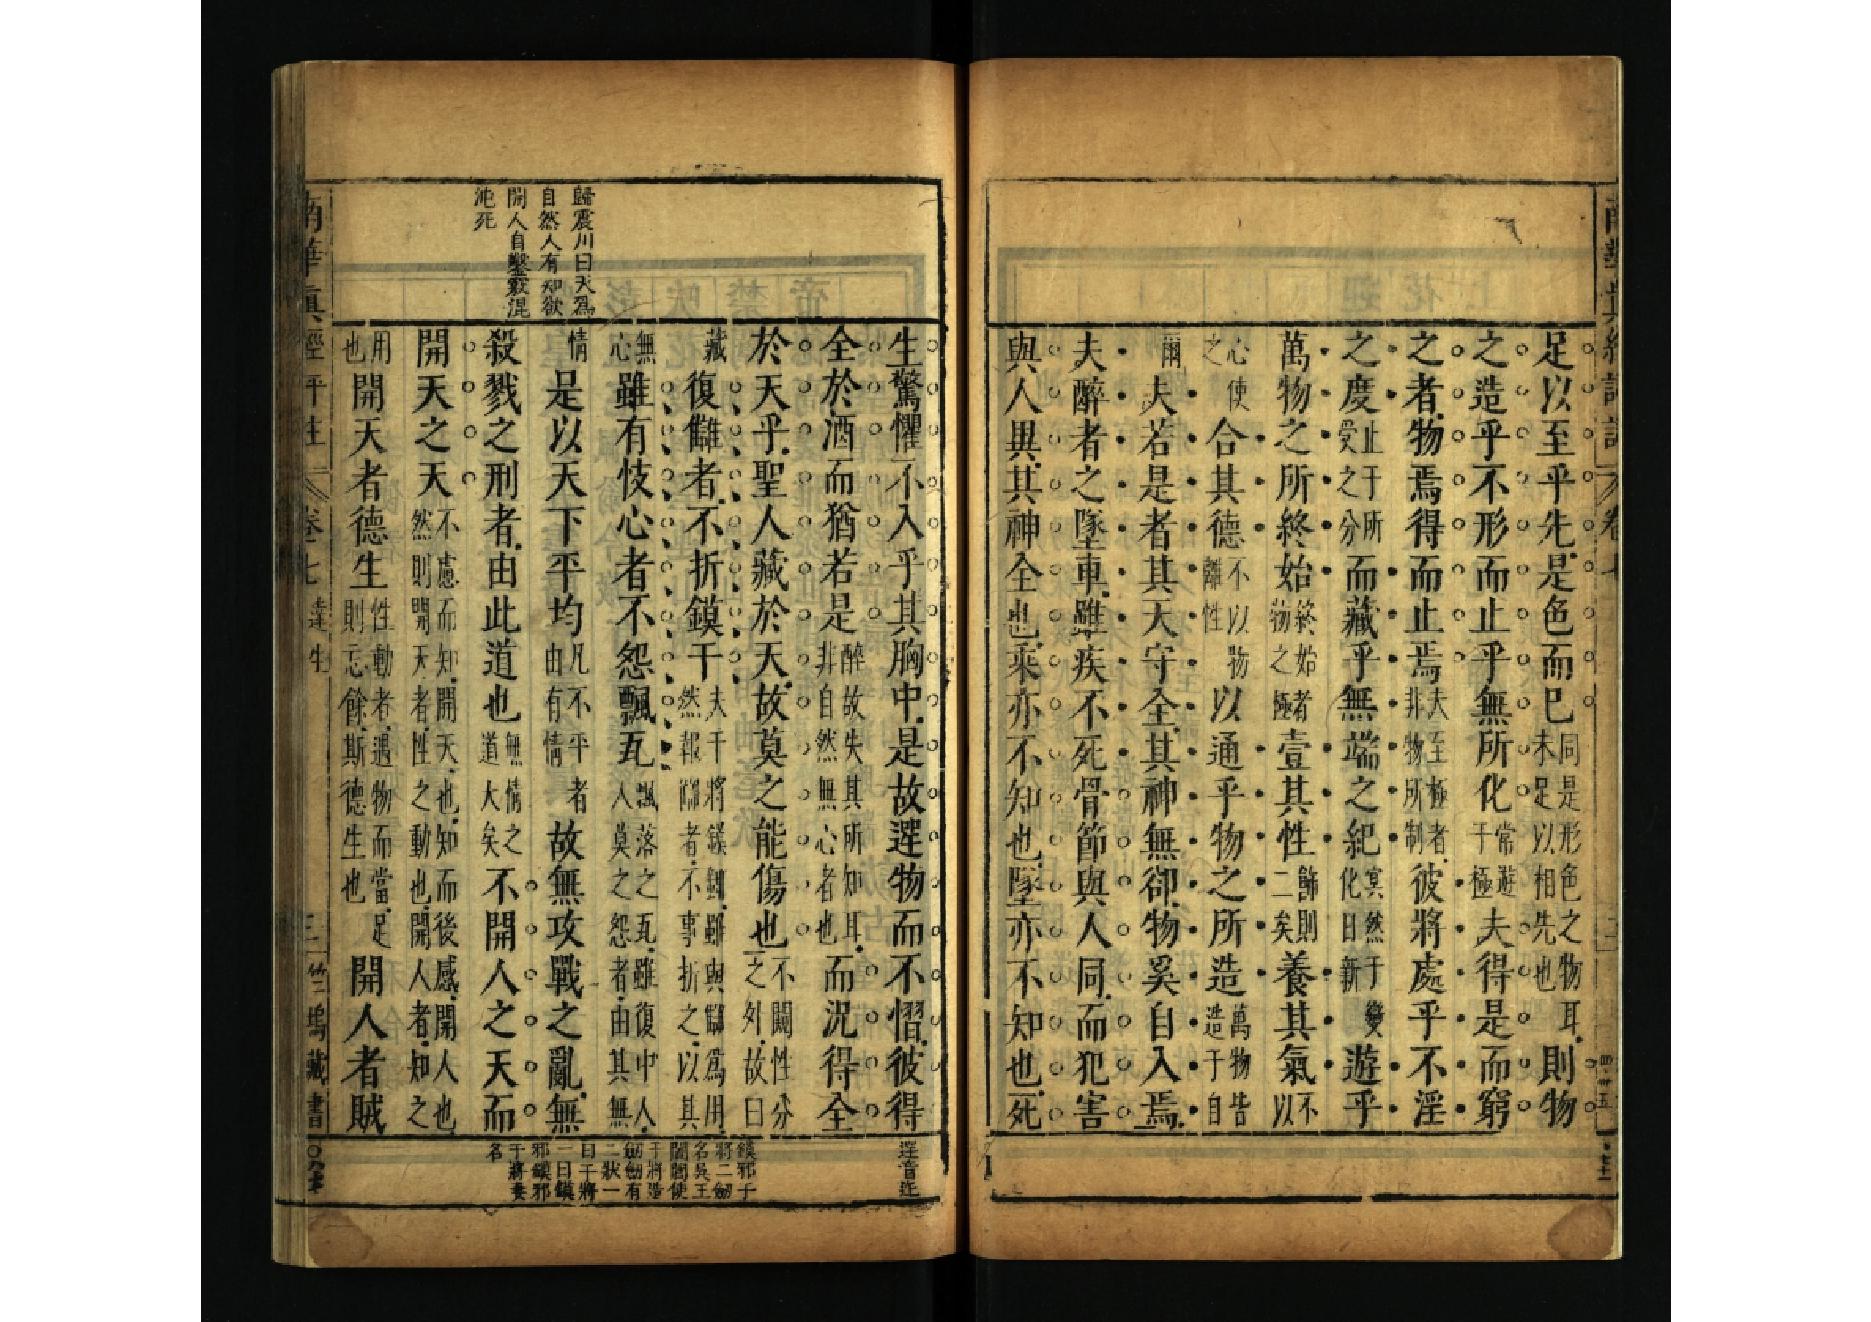 足以至乎先是色而已同是形色之物耳未足以相先也則物
之造乎不形而止乎無所化常遊于極夫得是而窮
之者物焉得而止焉夫至極者非物所制彼將處乎不淫
之度止于所受之分而藏乎無端之紀冥然于變化日新遊乎
萬物之所終始終始者物之極壹其性飾則二矣養其氣不以
心使之合其德不以物離性以通乎物之所造萬物皆造于自
爾夫若是者其天守全其神無郤物奚自入焉
夫醉者之墜車雖疾不死骨節與人同而犯害
與人異其神全也乘亦不知也墜亦不知也死
生驚懼不入乎其胸中是故遻物而不慴彼得
全於酒而猶若是醉故失其所知耳非自然無心者也而況得全
於天乎聖人藏於天故莫之能傷也不闚性分之外故曰
藏復讎者不折鏌干夫干將鏌鋣雖與讎為用然報讎者不事折之以其
無心雖有忮心者不怨飄瓦飄落之瓦雖復中人人莫之怨者由其無
情是以天下平均凡不平者由有情故無攻戰之亂無
殺戮之刑者由此道也無情之道大矣不開人之天而
開天之天不慮而知開天也知而後感開人也然則開天者性之動也開人者知之
用也開天者德生性動者遇物而當足則忘餘斯德生也開人者賊
歸震川曰天為
自然人有知欲
開人自鑿竅混
沌死
遻音迕
鏌邪干
將二劒
名吳王
闔閭使
干將造
劒劒有
二狀一
曰干將
一曰鏌
邪鏌邪
干將妻
名
南華真經評註
卷七
達生
三
竺塢藏書